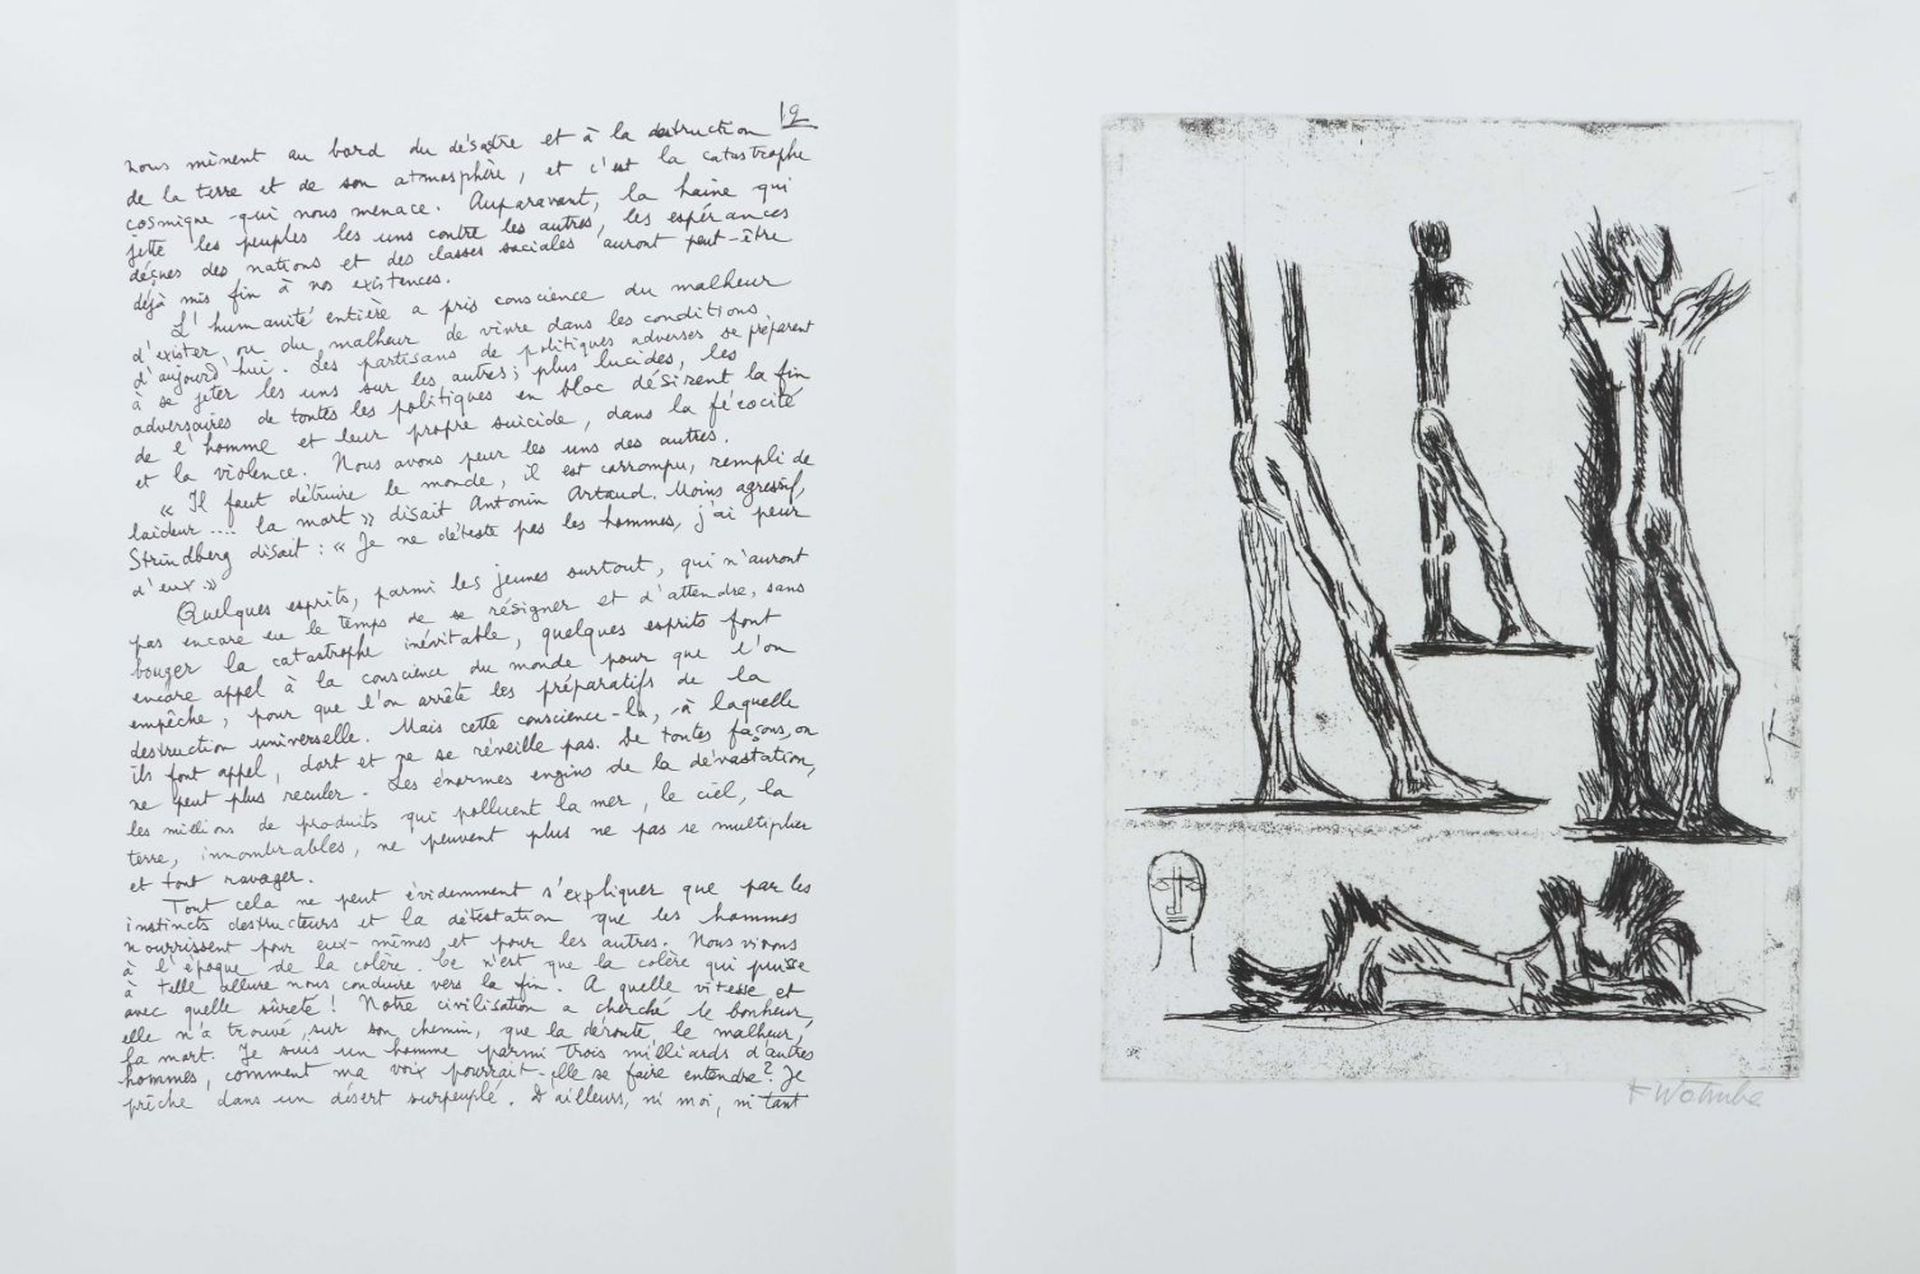 19
nous mènent au bord du désastre et à la destruction
de la terre et de son atmosphère, et c'est la catastrophe
cosmique qui nous menace. Auparavant, la haine qui
jette les peuples les uns contre les autres, les espérances
déçues des nations et des classes sociales auront peut-être
déjà mis fin à nos existences.
L'humanité entière a pris conscience du malheur
d'exister ou du malheur de vivre dans les conditions
d'aujourd'hui. Les partisans de politiques adverses se préparent
à se jeter les uns sur les autres; plus lucides, les
adversaires de toutes les politiques en bloc désirent la fin
de l'homme et leur propre suicide, dans la férocité
et la violence. Nous avons peur les uns des autres.
« Il faut détruire le monde, il est corrompu, rempli de
laideur.... la mort » disait Antonin Artaud. Moins agressif,
Strindberg disait : « Je ne déteste pas les hommes, j'ai peur
d'eux. »
Quelques esprits, parmi les jeunes surtout, qui n'auront
pas encore eu le temps de se résigner et d'attendre, sans
bouger la catastrophe inévitable, quelques esprits font
encore appel à la conscience du monde pour que l'on
empêche, pour que l'on arrête les préparatifs de la
destruction universelle. Mais cette conscience-là, à laquelle
ils font appel, dort et ne se réveille pas. De toutes façons, on
ne peut plus reculer. Les énormes engins de la dévastation,
les millions de produits qui polluent la mer, le ciel, la
terre, innombrables, ne peuvent plus ne pas se multiplier
et tout ravager.
Tout cela ne peut évidemment s'expliquer que par les
instincts destructeurs et la détestation que les hommes
nourrissent pour eux-mêmes et pour les autres. Nous vivons
à l'époque de la colère. Ce n'est que la colère qui puisse
à telle allure nous conduire vers la fin. A quelle vitesse et
avec quelle sûreté ! Notre civilisation a cherché le bonheur,
elle n'a trouvé, sur son chemin, que la déroute, le malheur,
la mort. Je suis un homme parmi trois milliards d'autres
hommes, comment ma voix pourrait-elle se faire entendre ? Je
prêche dans un désert surpeuplé. D'ailleurs, ni moi, ni tant
F Wotruba